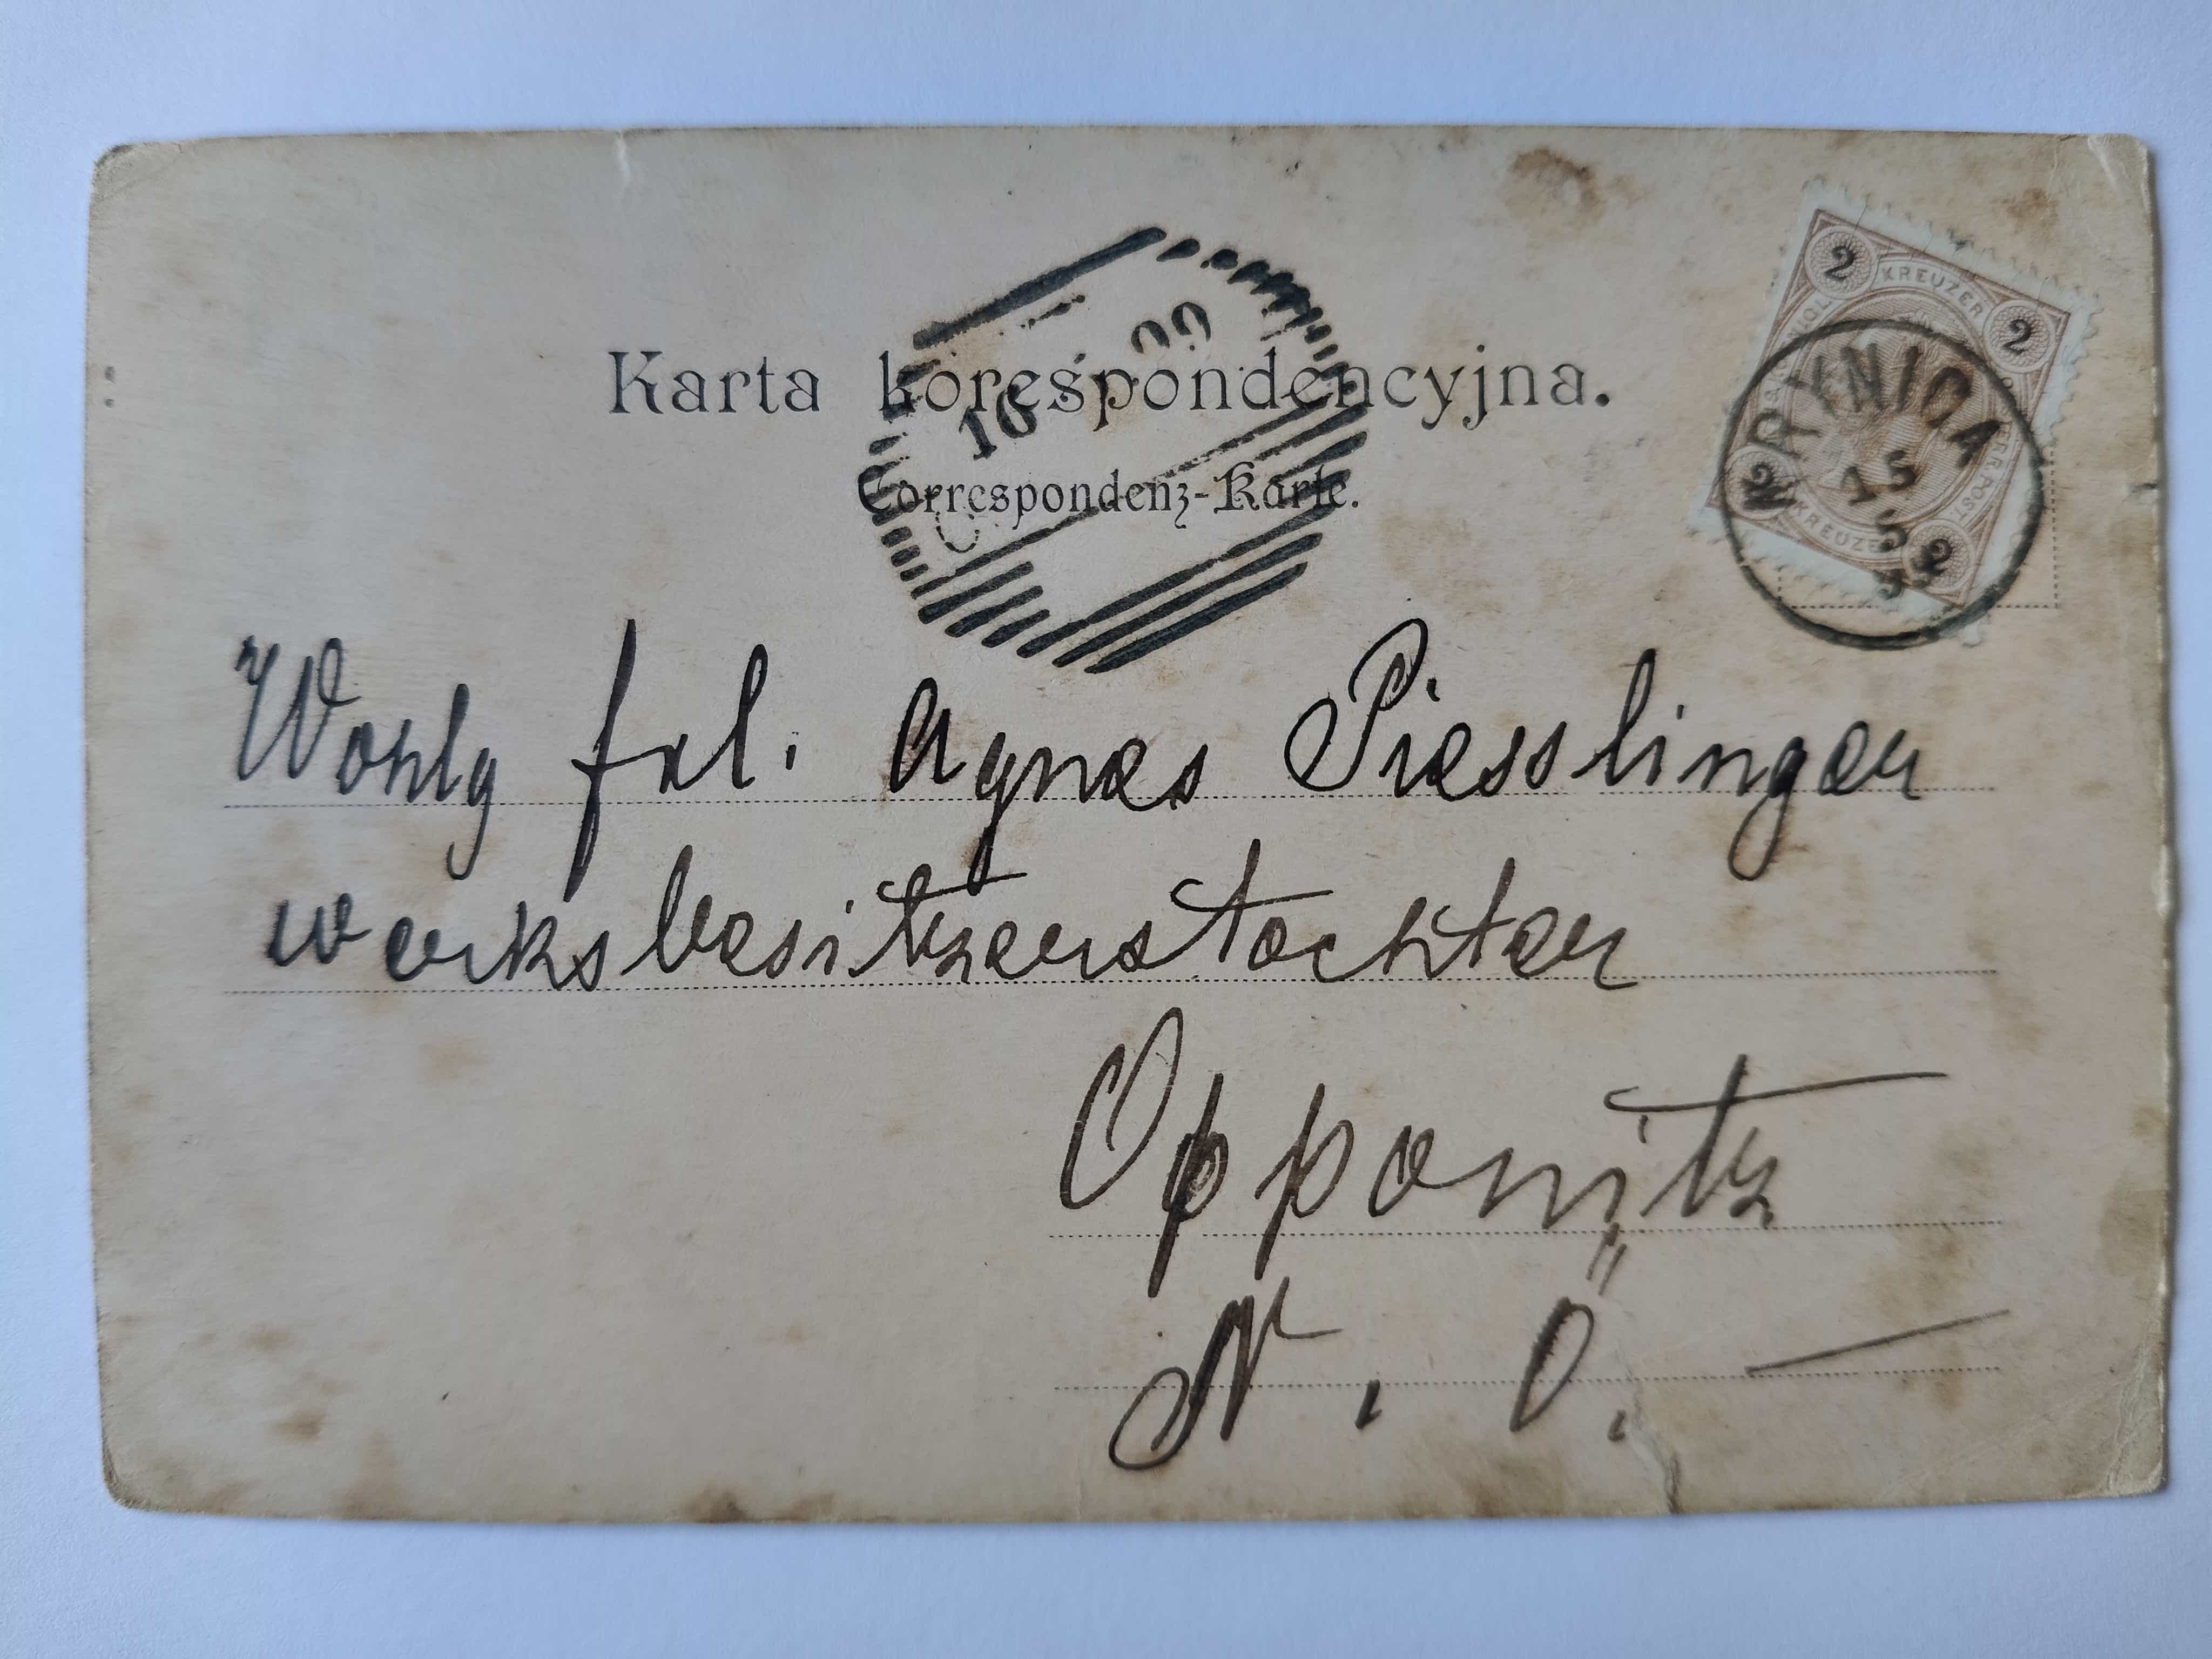 Karta korespondencyjna.
Correspondenz-Karte.
16
99
2 KREUZER 2
KRYNICA
15
5
99
2 KREUZER 2
Wohlg frl. Agnes Piesslinger
werksbesitzerstochter
Opponitz
N. Ö.